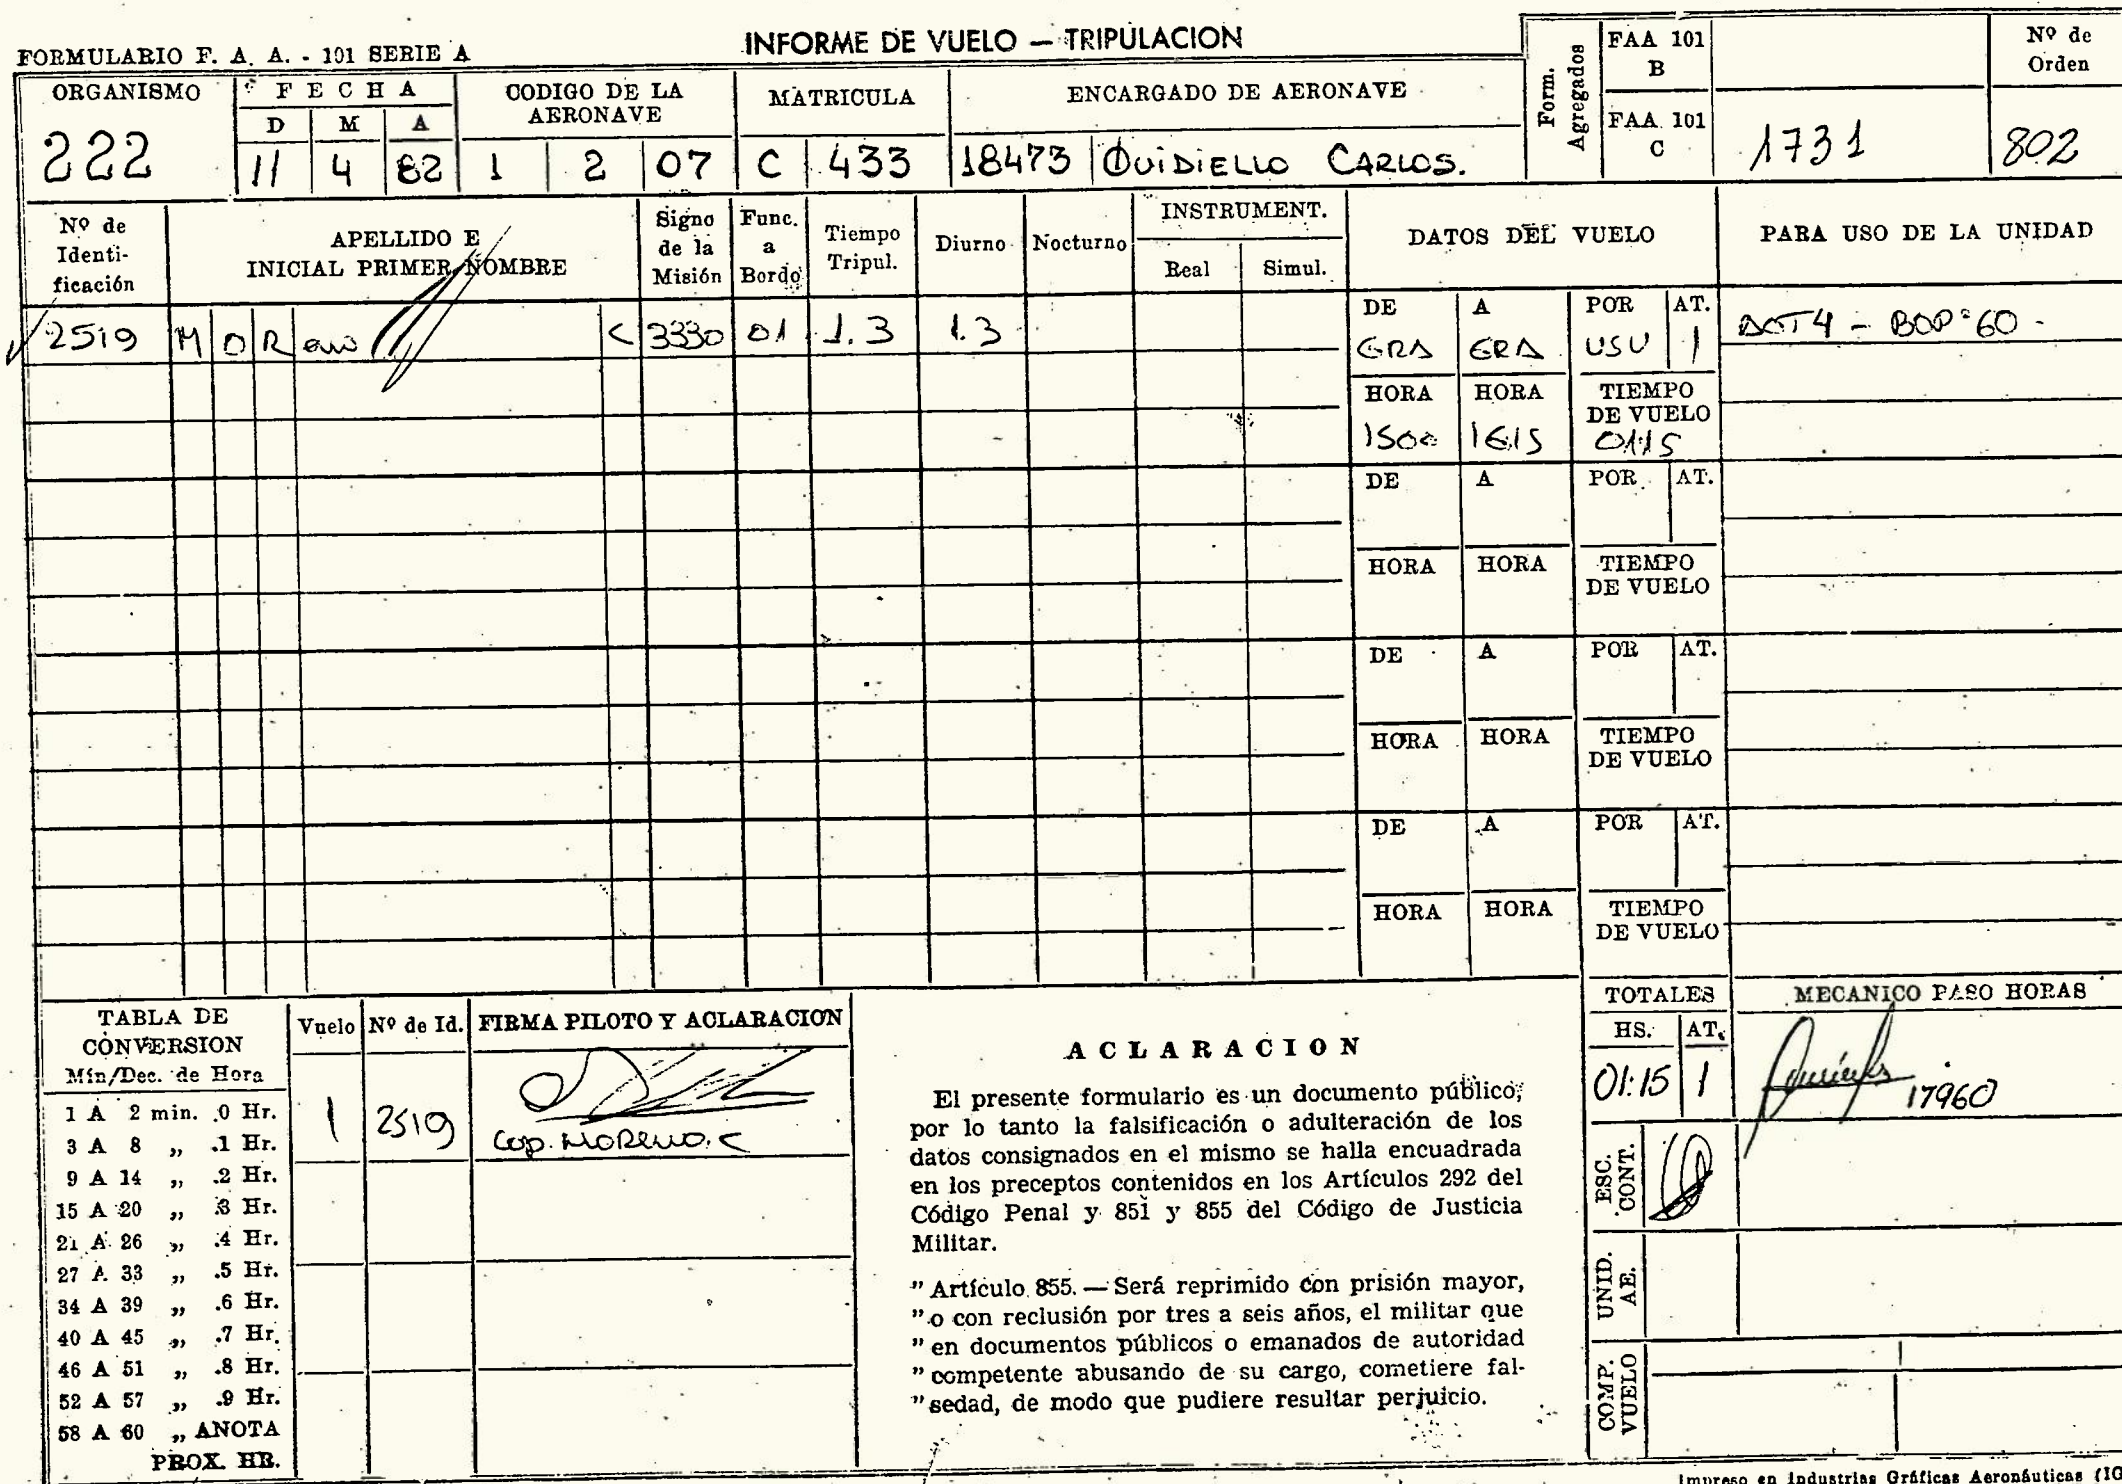 FORMULARIO F. A. A. - 101 SERIE A
INFORME DE VUELO — TRIPULACION
Form. Agregados
FAA 101 B
FAA 101 C
1731
Nº de Orden
802
ORGANISMO
222
FECHA
D M A
11 4 82
CODIGO DE LA AERONAVE
1 2 07
MATRICULA
C 433
ENCARGADO DE AERONAVE
18473 QUIDIELLO CARLOS.
Nº de Identi-ficación
APELLIDO E INICIAL PRIMER NOMBRE
Signo de la Misión
Func. a Bordo
Tiempo Tripul.
Diurno
Nocturno
INSTRUMENT.
Real Simul.
DATOS DEL VUELO
PARA USO DE LA UNIDAD
2519 MOReno C 3330 01 1.3 1.3
DE A POR AT.
GRA GRA USU 1
BOP:60-
HORA HORA TIEMPO DE VUELO
1500 1615 01:15
DE A POR AT.
HORA HORA TIEMPO DE VUELO
DE A POR AT.
HORA HORA TIEMPO DE VUELO
DE A POR AT.
HORA HORA TIEMPO DE VUELO
TABLA DE CONVERSION
Min/Dec. de Hora
1 A 2 min. .0 Hr.
3 A 8 „ .1 Hr.
9 A 14 „ .2 Hr.
15 A 20 „ .3 Hr.
21 A 26 „ .4 Hr.
27 A 33 „ .5 Hr.
34 A 39 „ .6 Hr.
40 A 45 „ .7 Hr.
46 A 51 „ .8 Hr.
52 A 57 „ .9 Hr.
58 A 60 „ ANOTA
PROX. HR.
Vuelo Nº de Id. FIRMA PILOTO Y ACLARACION
1 2519
Cap. MORENO. C
ACLARACION
El presente formulario es un documento público,
por lo tanto la falsificación o adulteración de los
datos consignados en el mismo se halla encuadrada
en los preceptos contenidos en los Artículos 292 del
Código Penal y 851 y 855 del Código de Justicia
Militar.
" Artículo 855. — Será reprimido con prisión mayor,
" o con reclusión por tres a seis años, el militar que
" en documentos públicos o emanados de autoridad
" competente abusando de su cargo, cometiere fal-
" sedad, de modo que pudiere resultar perjuicio.
TOTALES
HS. AT.
01:15 1
MECANICO PASO HORAS
17960
ESC. CONT.
UNID. AE.
COMP. VUELO
Impreso en Industrias Gráficas Aeronáuticas